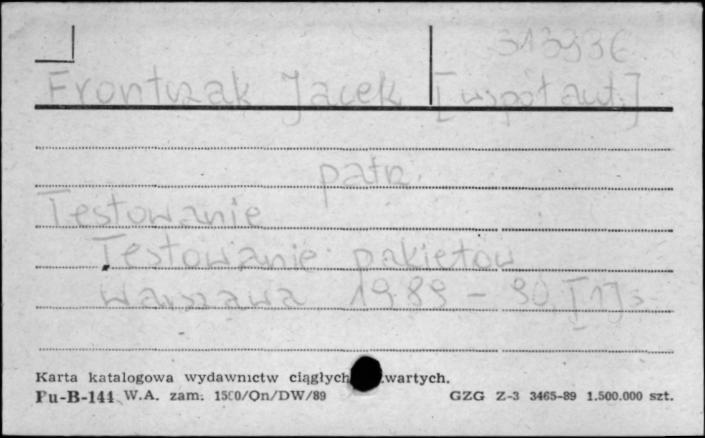 313936
Frontczak Jacek [współaut.]
patrz
Testowanie
Testowanie pakietów
Warszawa 1989-90, [1]s
Karta katalogowa wydawnictw ciągłych wartych.
Pu-B-144 W.A. zam. 1500/On/DW/89 GZG Z-3 3465-89 1.500.000 szt.